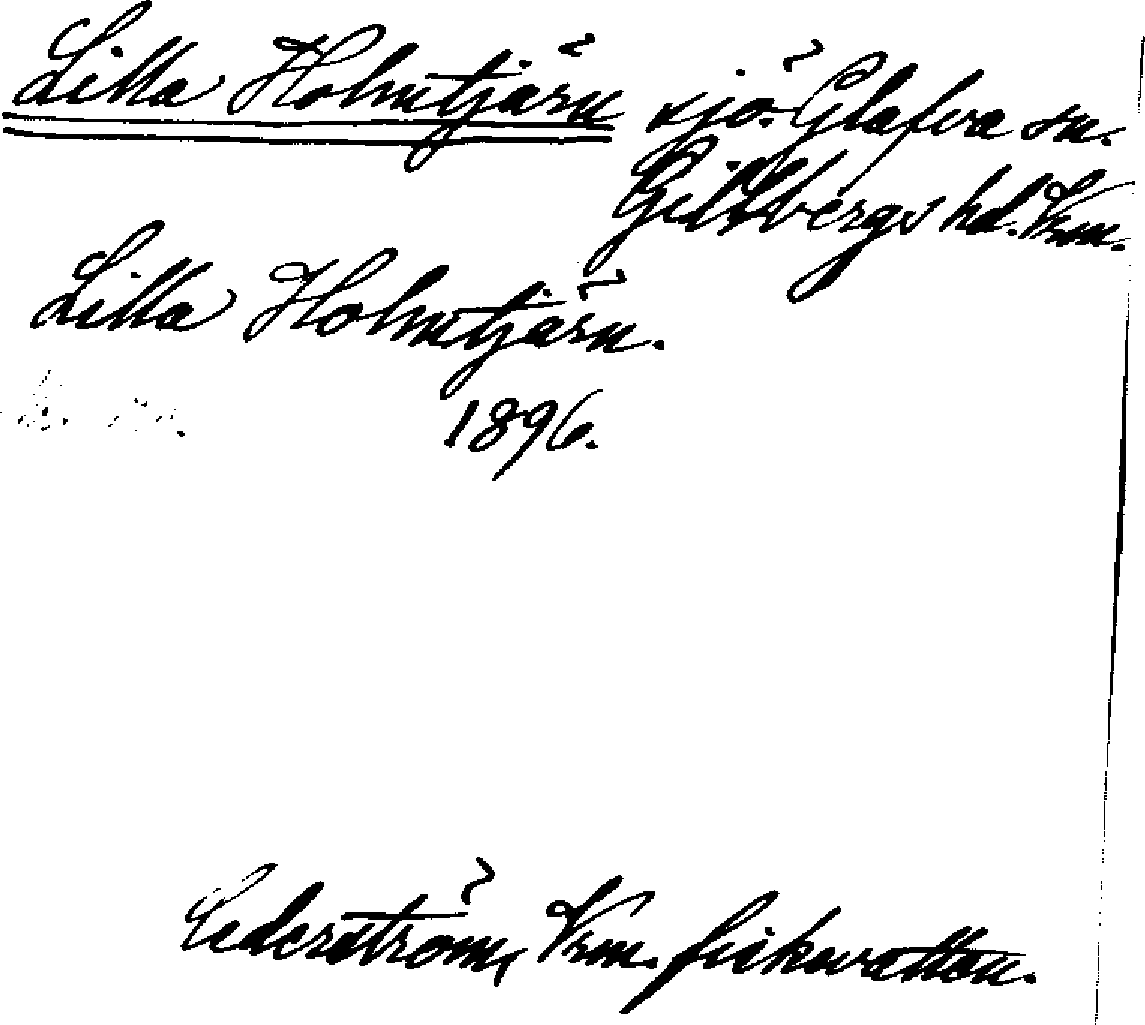 Lilla Holmtjärn sjö. Glafva sn.
Gillbergs hd. Vrm.
Lilla Holmtjärn.
1896.
Cederström, Vrm. fiskevatten.